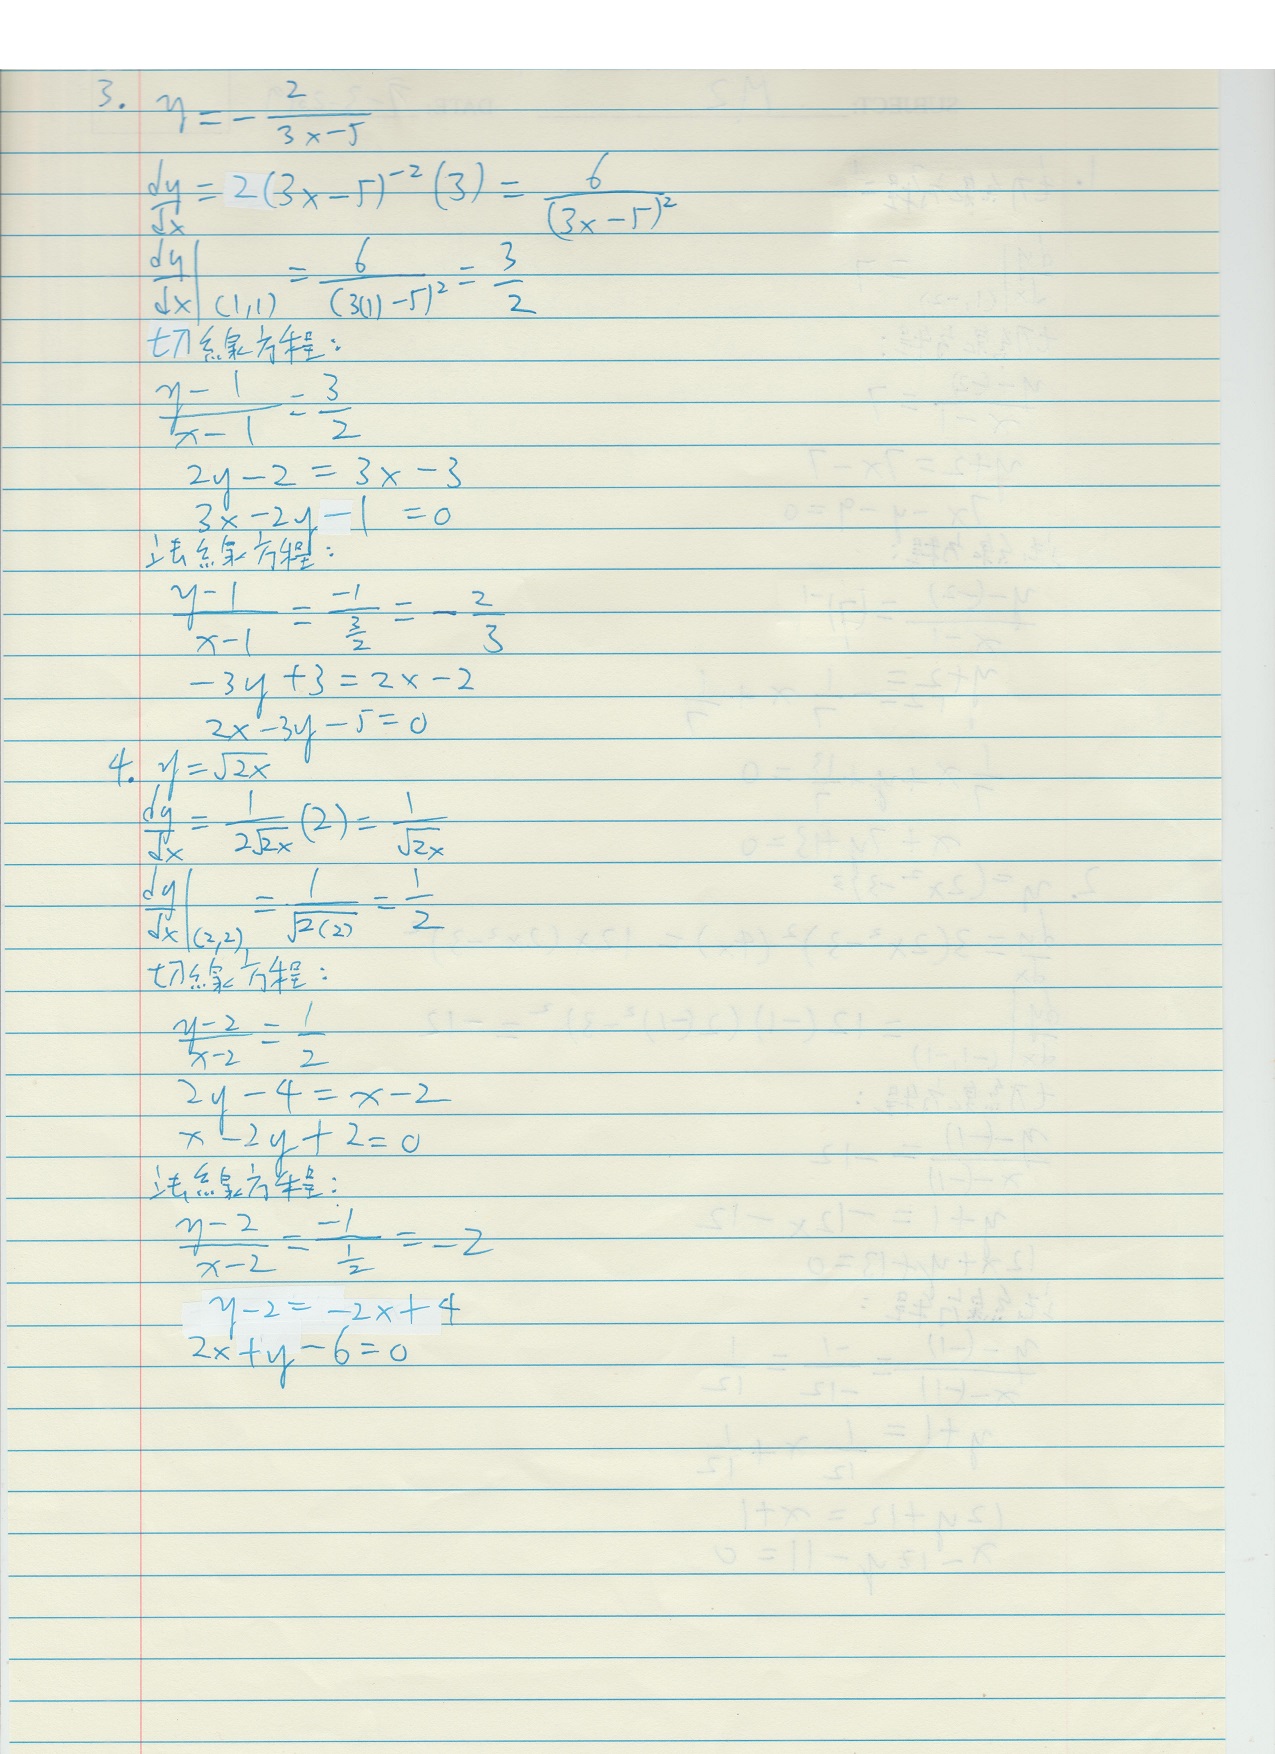 3. y = - 2/(3x-5)
dy/dx = 2(3x-5)^-2 (3) = 6/(3x-5)^2
dy/dx |(1,1) = 6/(3(1)-5)^2 = 3/2
切線方程:
(y-1)/(x-1) = 3/2
2y-2 = 3x-3
3x-2y-1 = 0
法線方程:
(y-1)/(x-1) = -1/(3/2) = - 2/3
-3y+3 = 2x-2
2x-3y-5 = 0
4. y = √2x
dy/dx = 1/(2√2x) (2) = 1/√2x
dy/dx |(2,2) = 1/√2(2) = 1/2
切線方程:
(y-2)/(x-2) = 1/2
2y-4 = x-2
x-2y+2 = 0
法線方程:
(y-2)/(x-2) = -1/(1/2) = -2
y-2 = -2x+4
2x+y-6 = 0